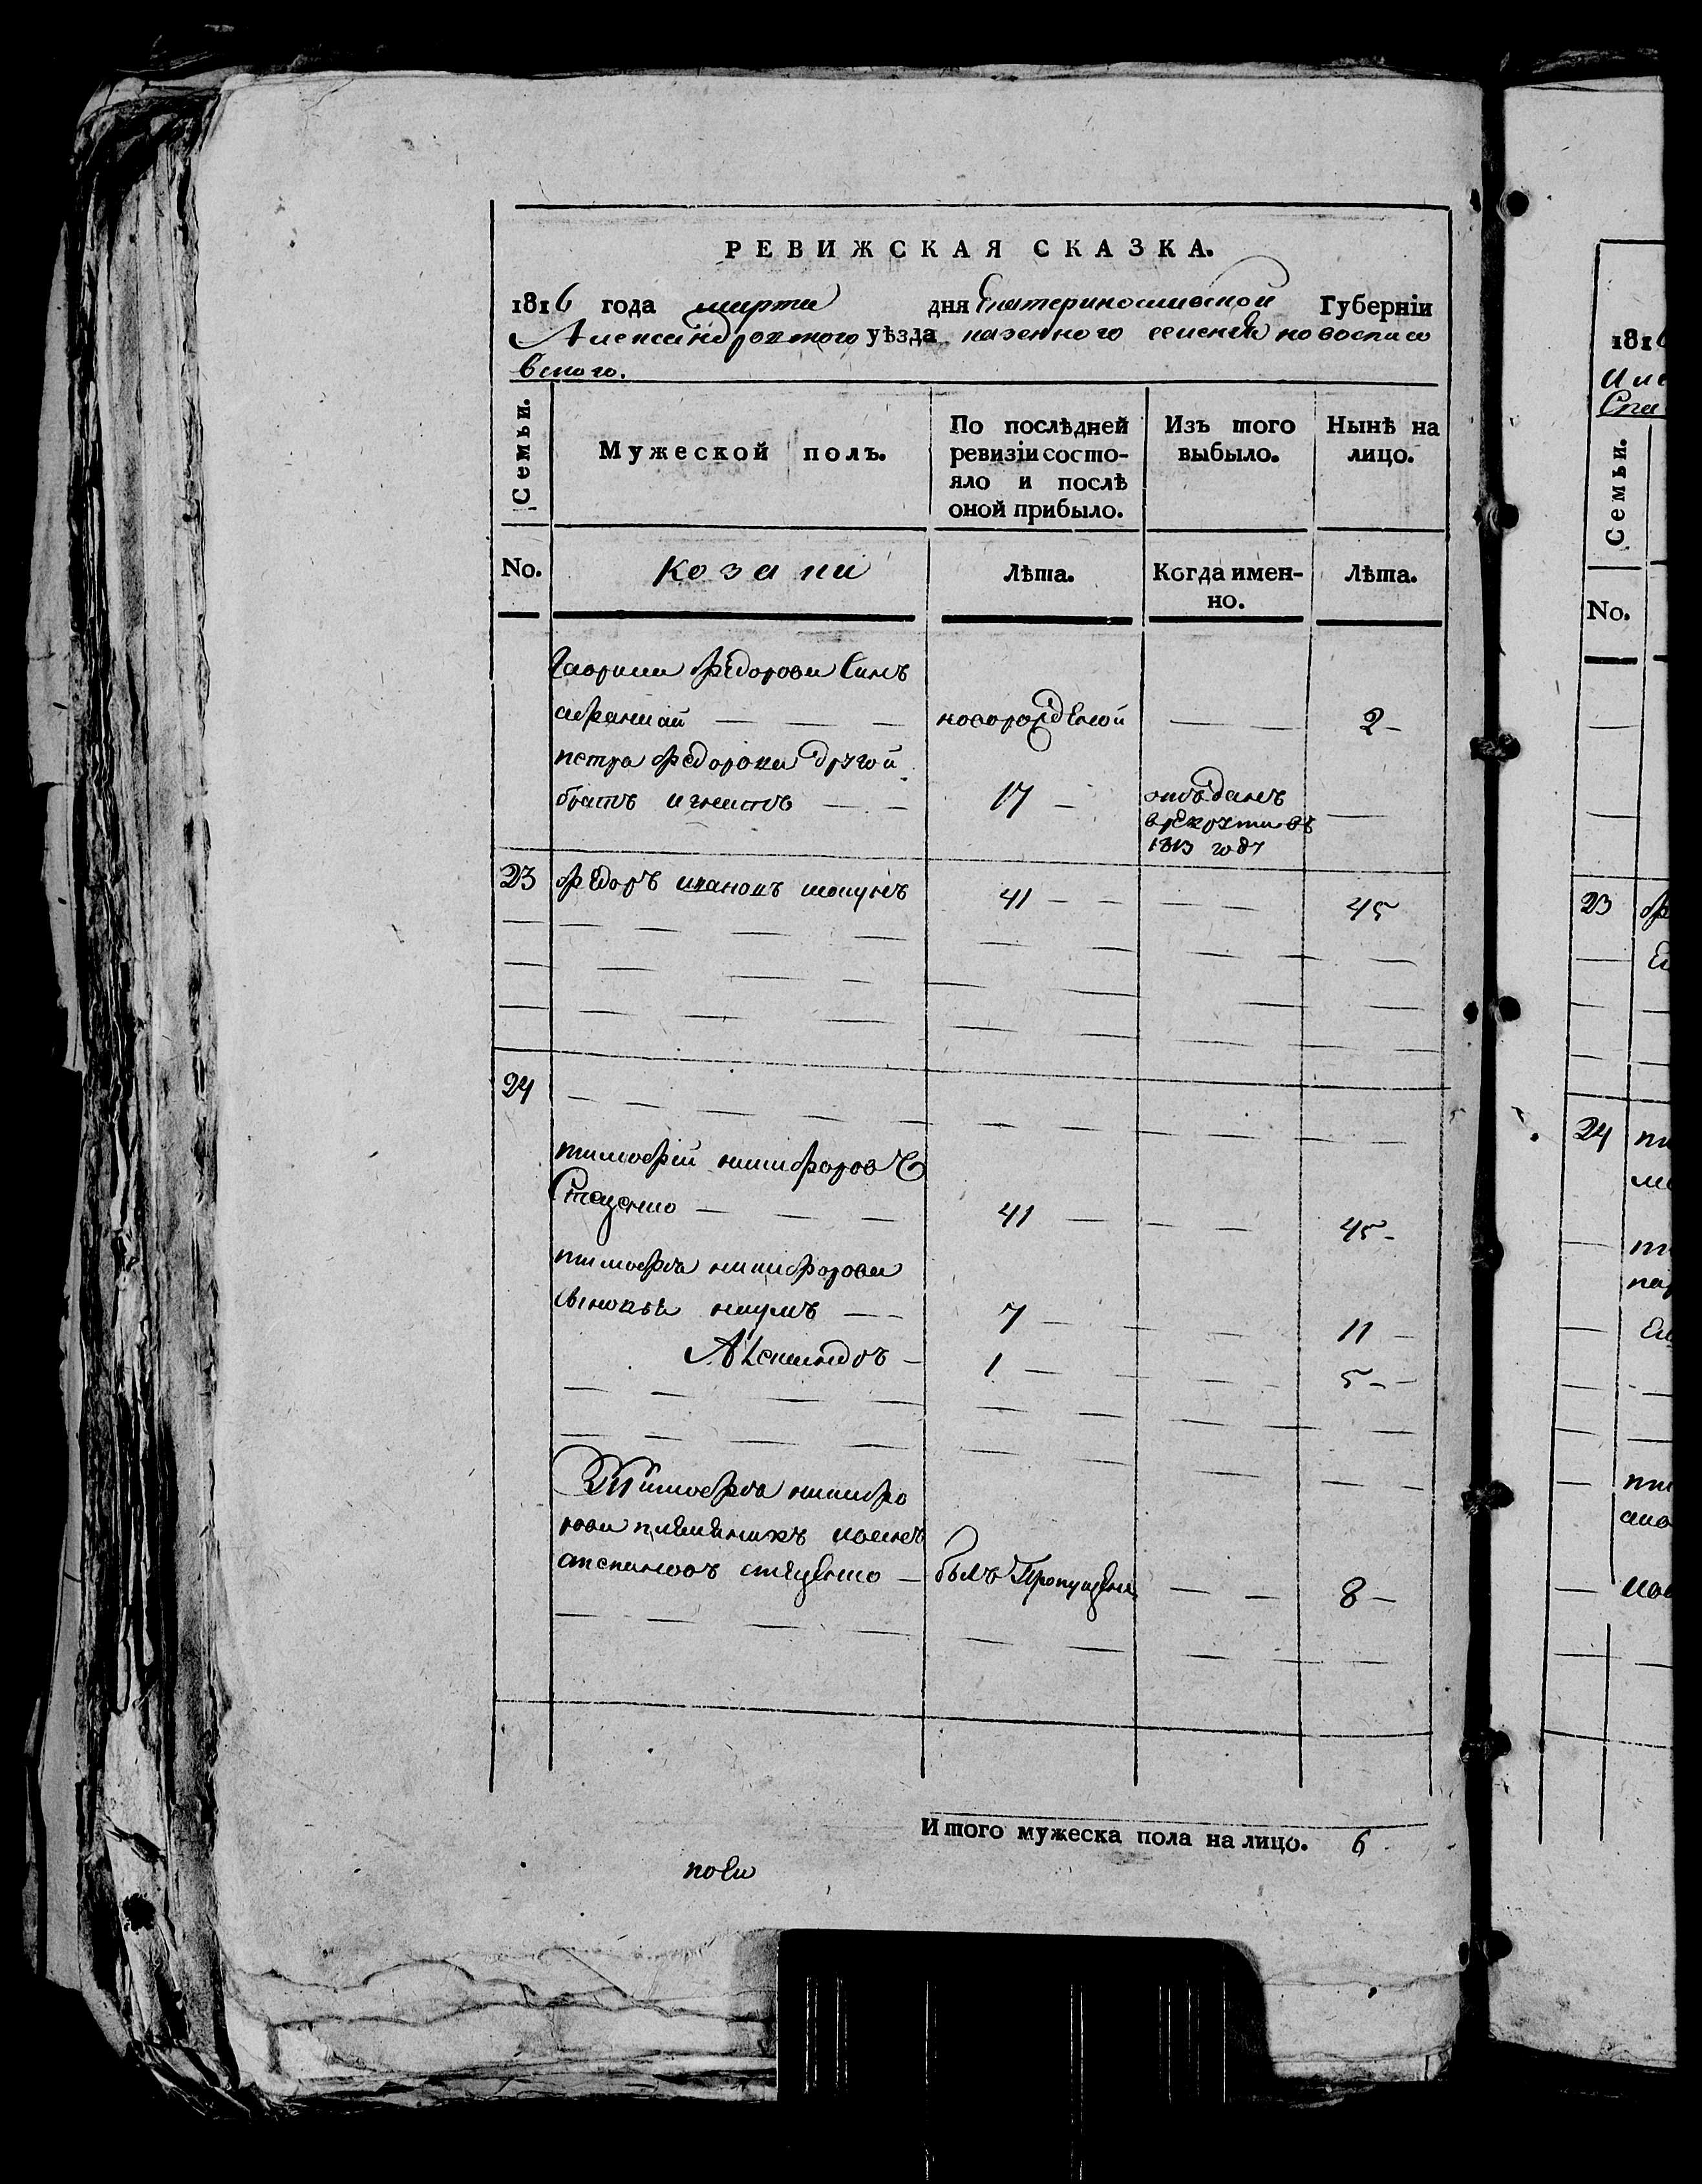 РЕВИЖСКАЯ СКАЗКА.
1816 года марта дня Екатеринославской Губерніи
Александровского уѣзда казенного селенія новоспасо
вского.
Семьи.
Мужеской полъ.
По послѣдней ревизіи состо-
яло и послѣ
оной прибыло.
Изъ того
выбыло.
Нынѣ на
лицо.
No.
козаки
Лѣта.
Когда имен-
но.
Лѣта.
Гаврила федорова Синъ
афанасий — — — новорожденой — — 2 -
петра федорова другой
братъ игнатъ — — 17 — отъданъ —
врекруты въ
1813 году
23 федоръ ивановъ 41 — — — — 45
24
тимофей никифоровъ
Стаценко — — — 41 — — — 45 -
тимофея никифорова
сыновья наумъ — — 7 — — — 11 —
Александръ — 1 — — — — 5 - -
Тимофея никифо
рова племянникъ
стаценко — былъ Пропущенъ — — 8 —
Итого мужеска пола на лицо. 6
1816
Семьи.
No.
23
24